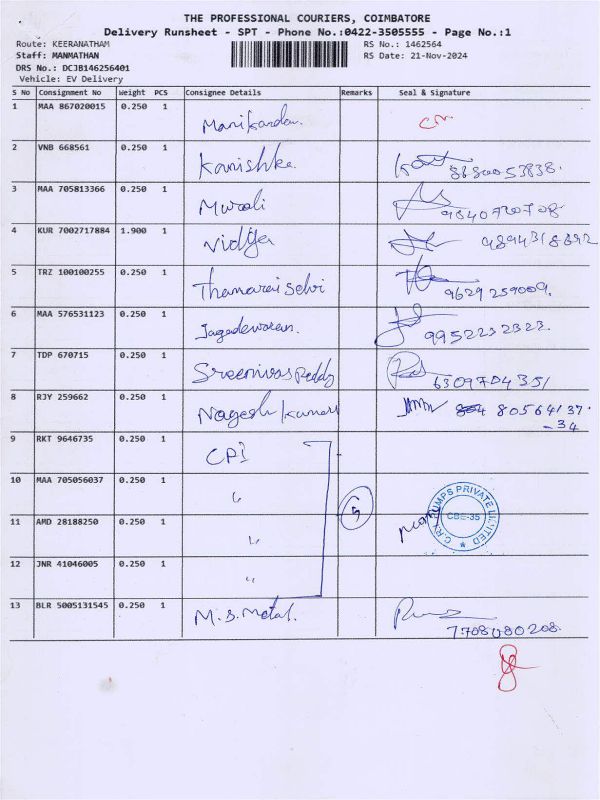 THE PROFESSIONAL COURIERS, COIMBATORE
Delivery Runsheet - SPT - Phone No.:0422-3505555 - Page No.:1
Route: KEERANATHAM RS No.: 1462564
Staff: MANMATHAN RS Date: 21-Nov-2024
DRS No.: DCJB146256401
Vehicle: EV Delivery
S No Consignment No Weight PCS Consignee Details Remarks Seal & Signature
1 MAA 867020015 0.250 1 Manikandan
2 VNB 668561 0.250 1 Kanishka 8680053838.
3 MAA 705813366 0.250 1 Murali 9840720708
4 KUR 7002717884 1.900 1 Vidya 9894318892
5 TRZ 100100255 0.250 1 Thamarai Selvi 9629259009.
6 MAA 576531123 0.250 1 Jagadeeswaran. 9952232323.
7 TDP 670715 0.250 1 Sreenivas Reddy 6309704351
8 RJY 259662 0.250 1 Nagesh Kumar 80564137.
-34
9 RKT 9646735 0.250 1 CPI
10 MAA 705056037 0.250 1 "
11 AMD 28188250 0.250 1 "
12 JNR 41046005 0.250 1 "
5
C.R.I. PUMPS PRIVATE LIMITED
CBE-35
13 BLR 5005131545 0.250 1 M.S. Metal. 7708080208.